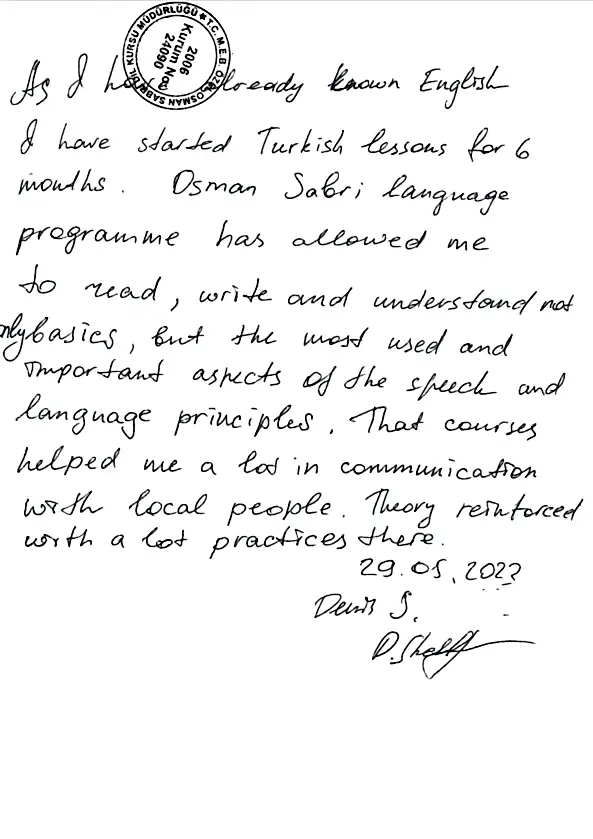 T.C. M.E.B. ÖZEL OSMAN SABRİ DİL KURSU MÜDÜRLÜĞÜ
2006
Kurum No:
24090
As I have already known English
I have started Turkish lessons for 6
months. Osman Sabri language
programme has allowed me
to read, write and understand not
only basics, but the most used and
important aspects of the speech and
language principles. That courses
helped me a lot in communication
with local people. Theory reinforced
with a lot practices there.
29.05.2022
Denis S.